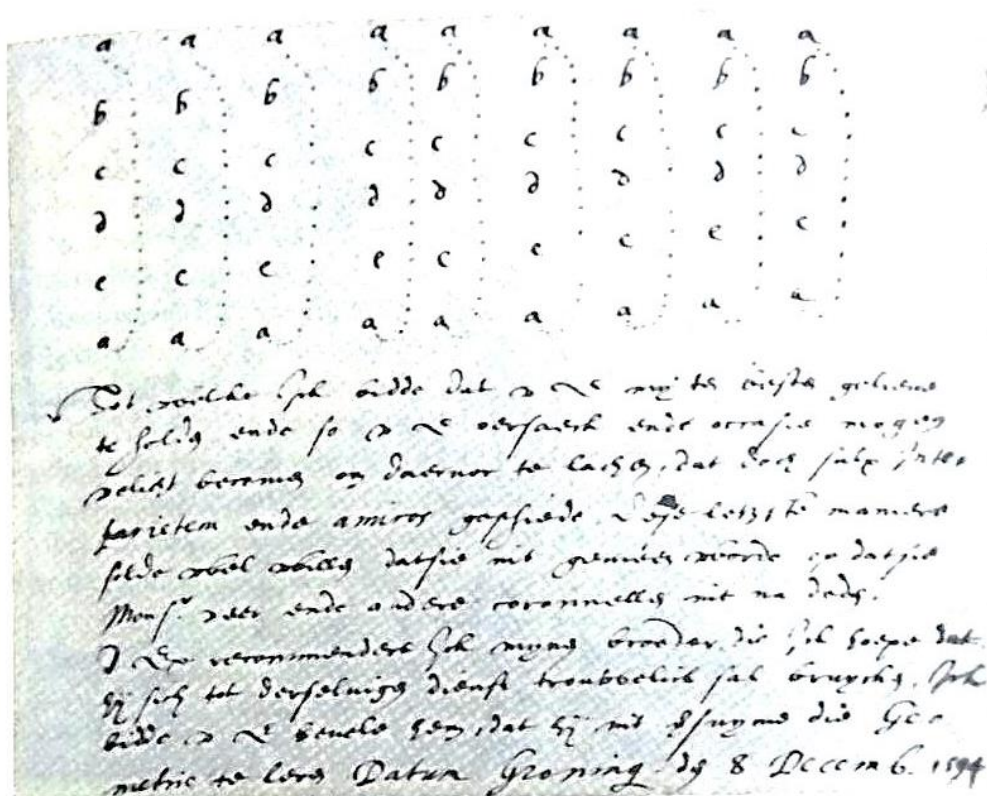 a a a a a a a a a
b b b b b b b b b
c c c c c c c c c
d d d d d d d d d
e e e e e e e e e
a a a a a a a a a
Tot welcke Ick bidde dat v mij ten besten geliene
te holden ende so v oersaeck ende occasie mogen
velicht becomen om daervor te lachen, dat doch sulx inter
parietem ende amicos geschiede. Dese letzste maniere
solde wel willen datsie nit gemeen worde op datsie
Monsr. veer ende andere coronnellen nit na doen.
recommendere Ick mynen broeder, die Ick hoepe dat
hij sich tot derseluigen dienst trouwelick sal bruycken. Ick
bidde v bevele hem, dat hij nit die Geo
metrie te leren Datum Groning den 8 Decemb. 1594